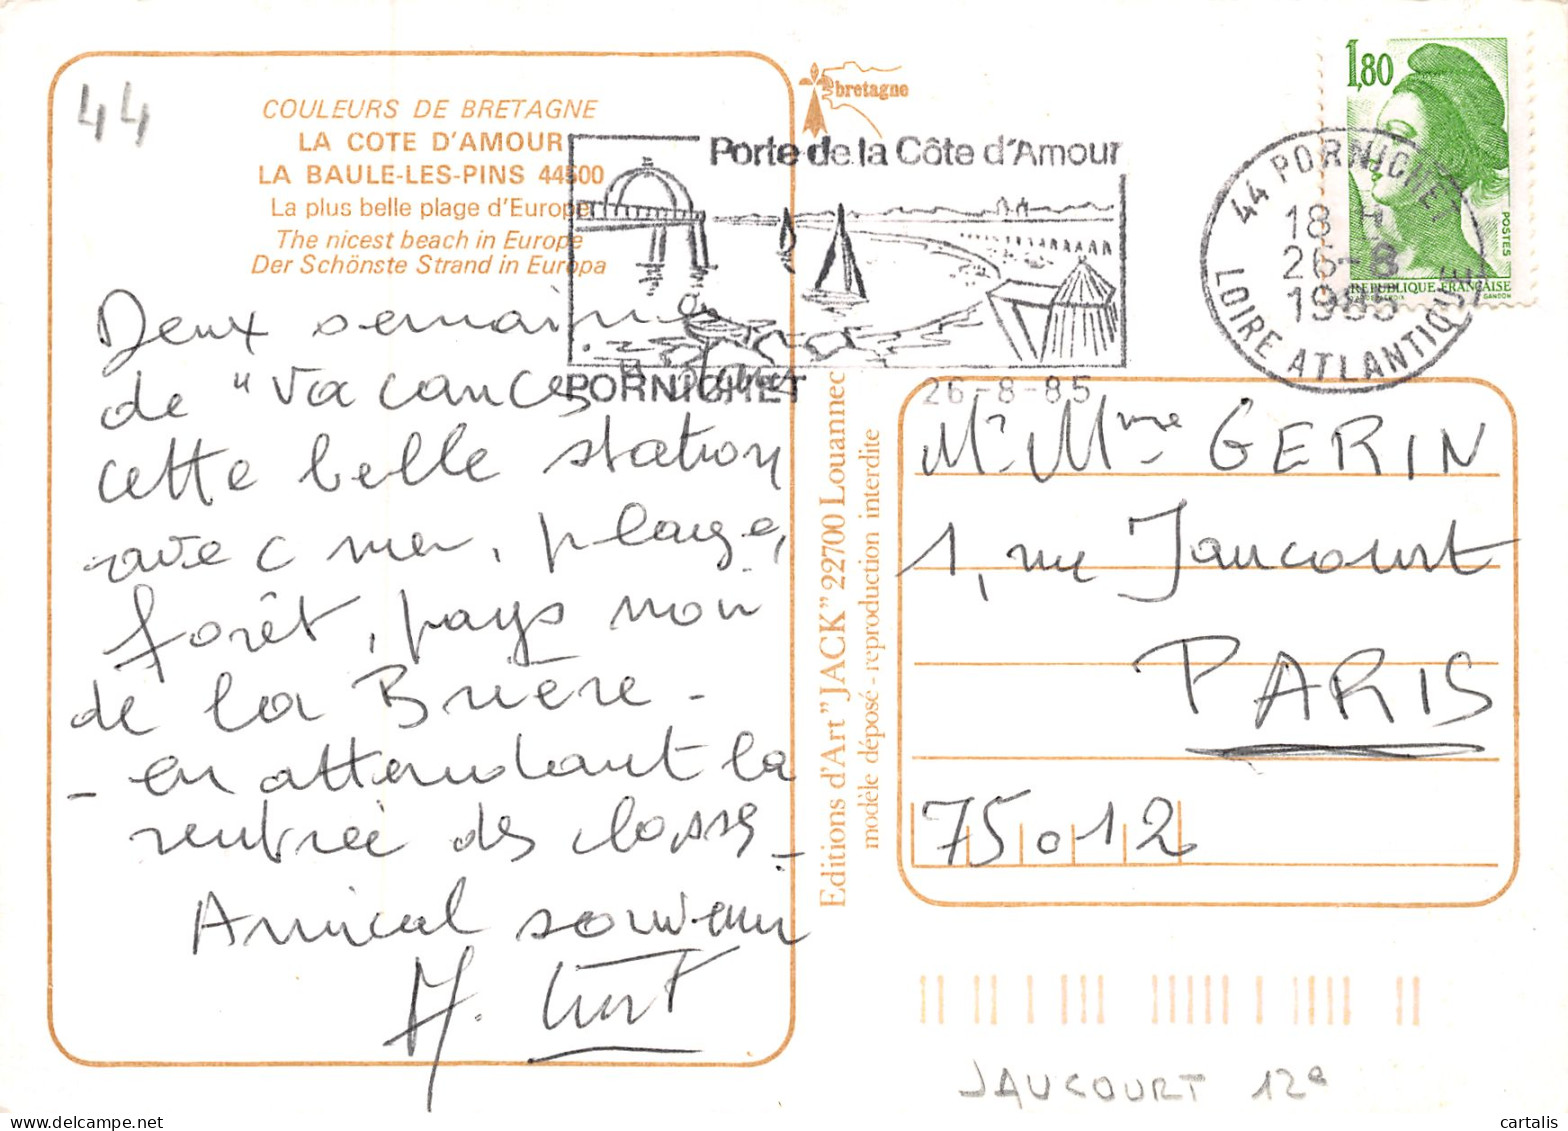 44
COULEURS DE BRETAGNE
LA COTE D'AMOUR
LA BAULE-LES-PINS 44500
La plus belle plage d'Europe
The nicest beach in Europe
Der Schönste Strand in Europa
bretagne
Porte de la Côte d'Amour
PORNICHET
26-8-85
44 PORNICHET
18 H
26-8
1985
LOIRE ATLANTIQUE
1,80
POSTES
REPUBLIQUE FRANÇAISE
GANDON
Deux semaines
de "vacances
cette belle station
avec mer, plage,
forêt, pays noir
de la Brière -
- en attendant la
rentrée des classes -
Amical souvenir
Editions d'Art "JACK" 22700 Louannec
modèle déposé - reproduction interdite
Mr Mme GERIN
1, rue Jaucourt
PARIS
75012
JAUCOURT 12e
cartalis